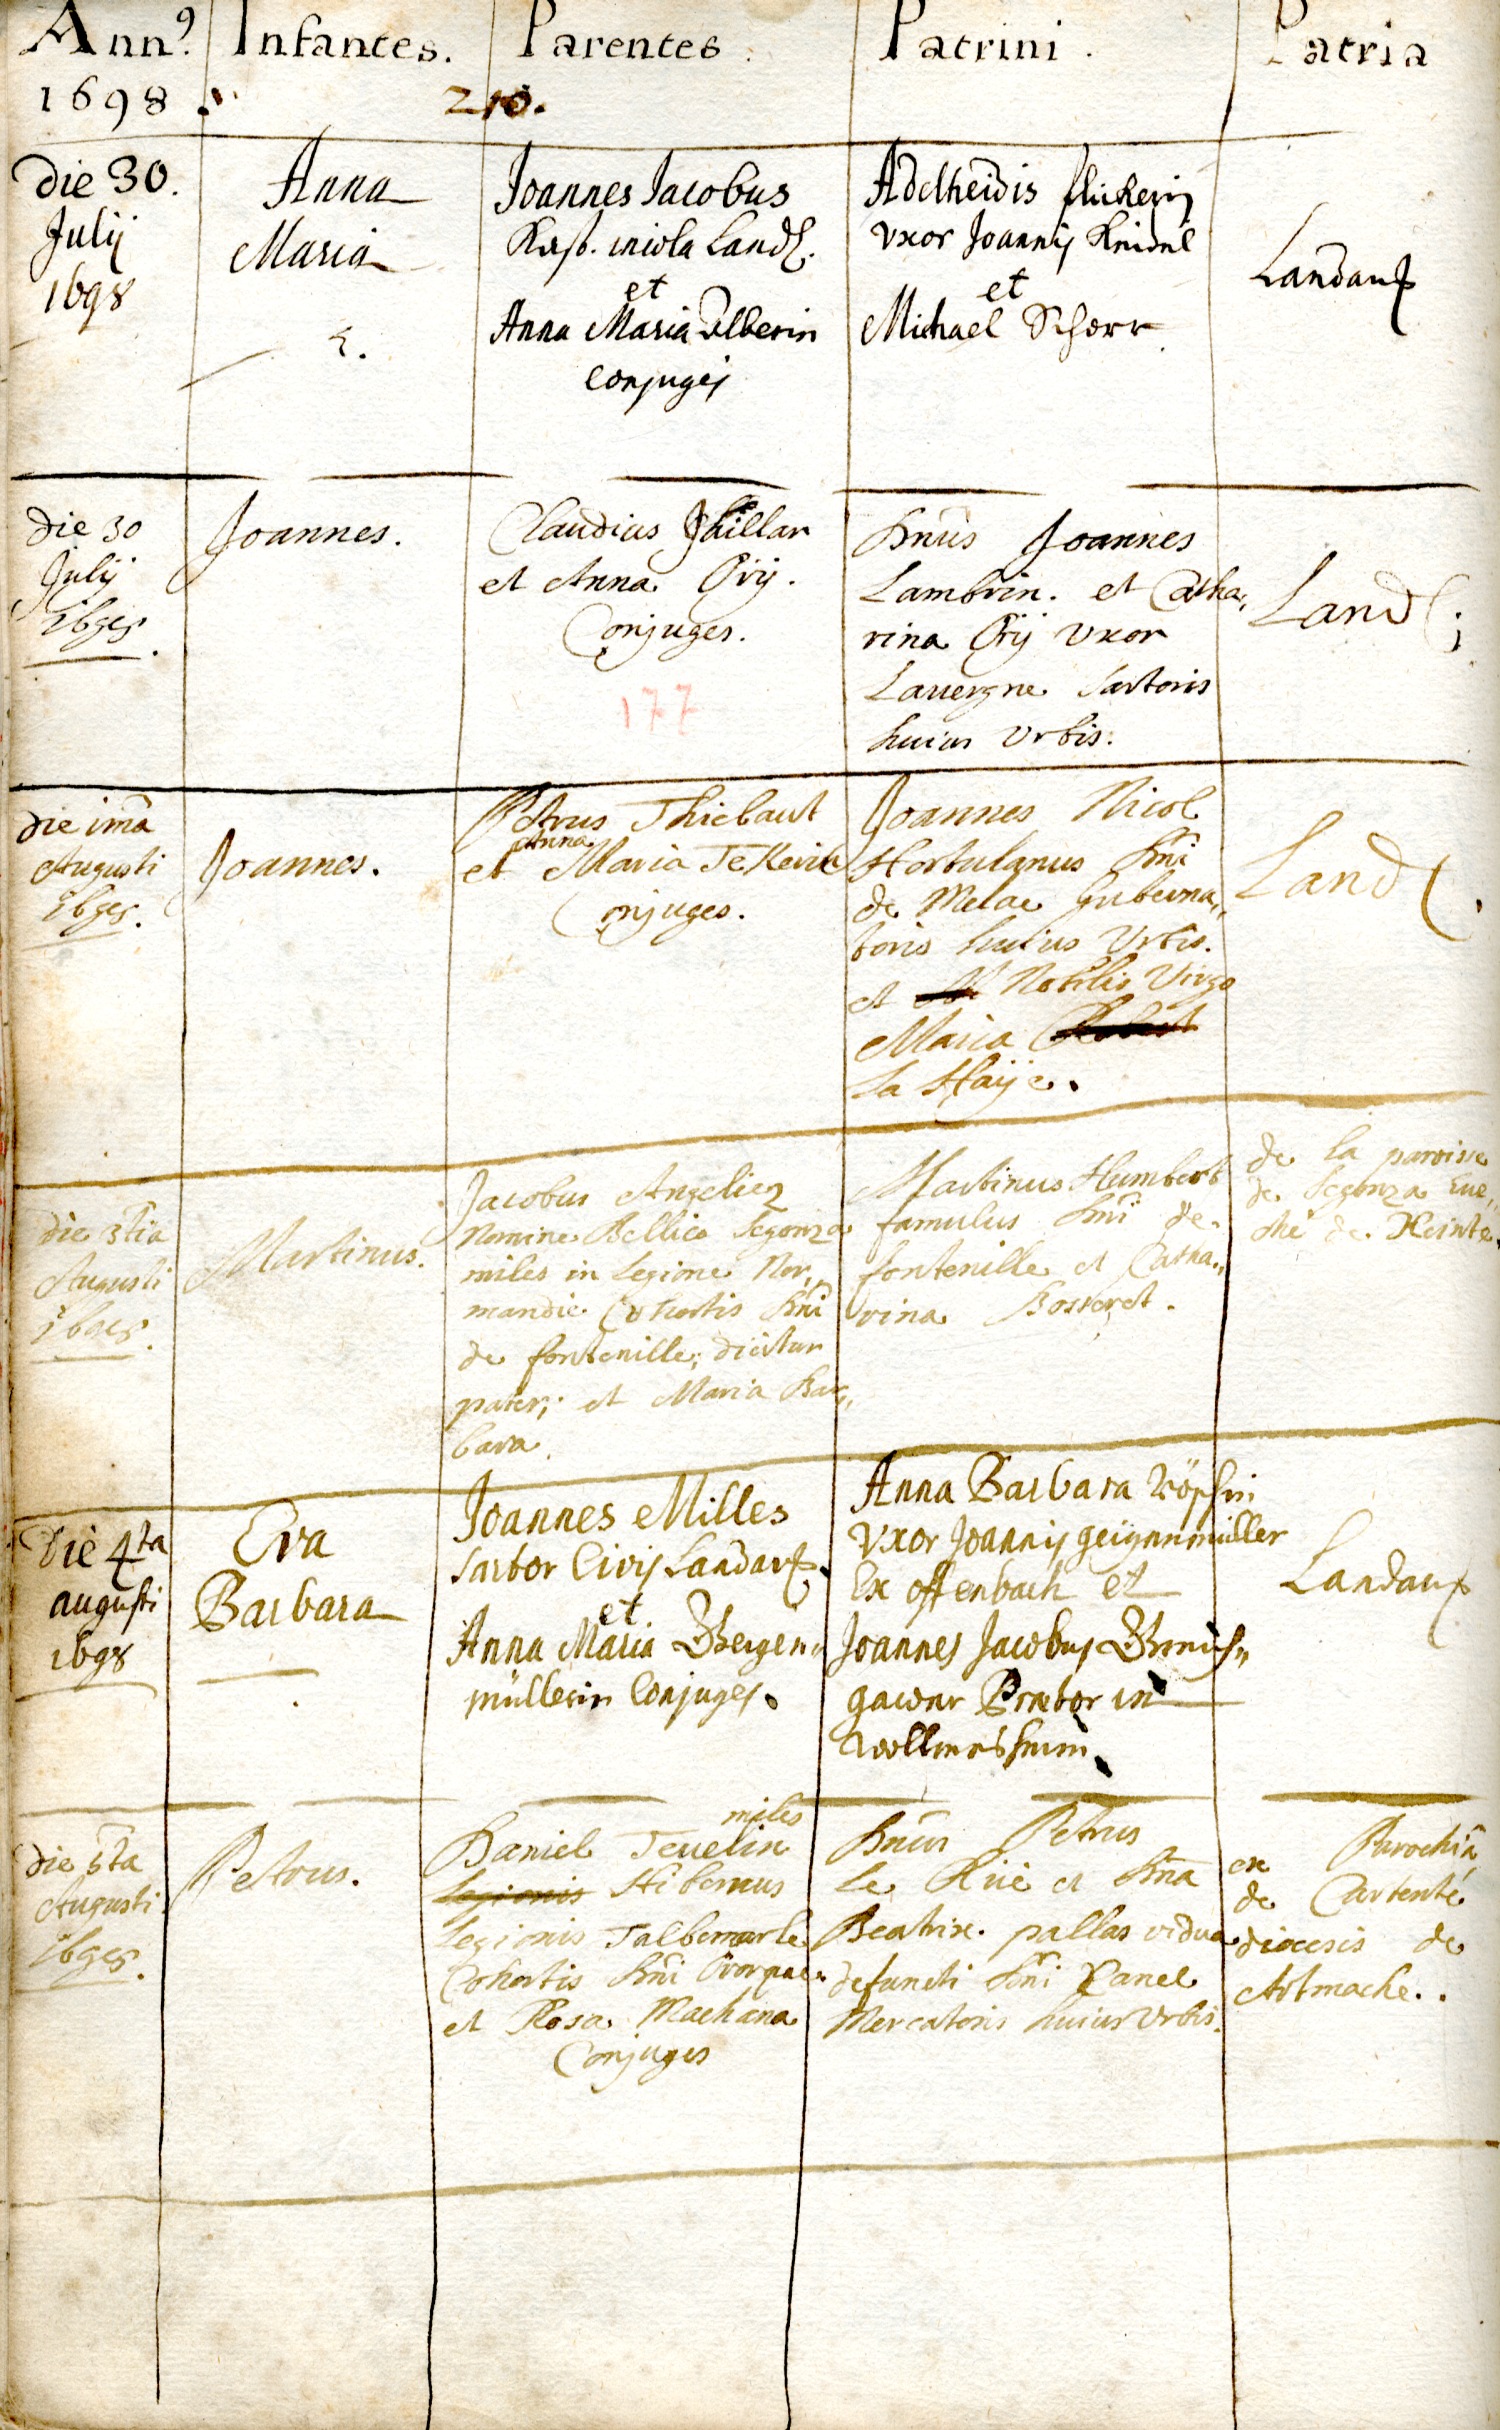 Annꝰ
1698.
Infantes.
Parentes.
Patrini.
Patria
210.
Die 30.
Julij
1698
Anna
Maria
Joannes Jacobus
incola Land.
et
Anna Maria
Conjuges
Adelheidis
Uxor Joannis
et
Michael Scherr
Landau
die 30
Julij
1698.
Joannes.
Claudius
et Anna
Conjuges.
177
Dnus Joannes
Lambrin. et Catha,,
rina Uxor
Lauergne Sartoris
huius Urbis.
Land
die ima
Augusti
1698.
Joannes.
Petrus Thiebaut
Anna
et Maria
Conjuges.
Joannes Nicol
Hortulanus Dni
de Melac Guberna,,
toris huius Urbis.
et Nobilis Virgo
Maria
La Haije.
Land
die 3tia
Augusti
1698.
Martinus.
Jacobus Angeliez
Nomine Bellico Segonza
miles in Legione Nor,,
mandie Cohortis Dni
de fontenille; dicitur
pater; et Maria Bar,,
bara.
Martinus Humbert
famulus Dni de
fontenille et Catha,,
rina Bosseret.
de la paroisse
de Segonza Eue,,
ché de Xeinte.
Die 4ta
augusti
1698
Eva
Barbara
Joannes Milles
Sartor Civis Landau
et
Anna Maria
müllerin Conjuges.
Anna Barbara
Uxor Joannis
Ex offenbach et
Joannes Jacobus
Praetor in
wollmesheim
Landau
die 5ta
Augusti
1698.
Petrus.
miles
Daniel Teuelin
Legionis Hibernus
Legionis Talbemarle
Cohortis Dni
et Rosa Machana
Conjuges
Dnus Petrus
Le Rüe et Dna
Beatrix pallas vidua
defuncti Dni Panel
Mercatoris huius Urbis.
ex Parochiâ
de Cartenté
diocesis de
Artmache..